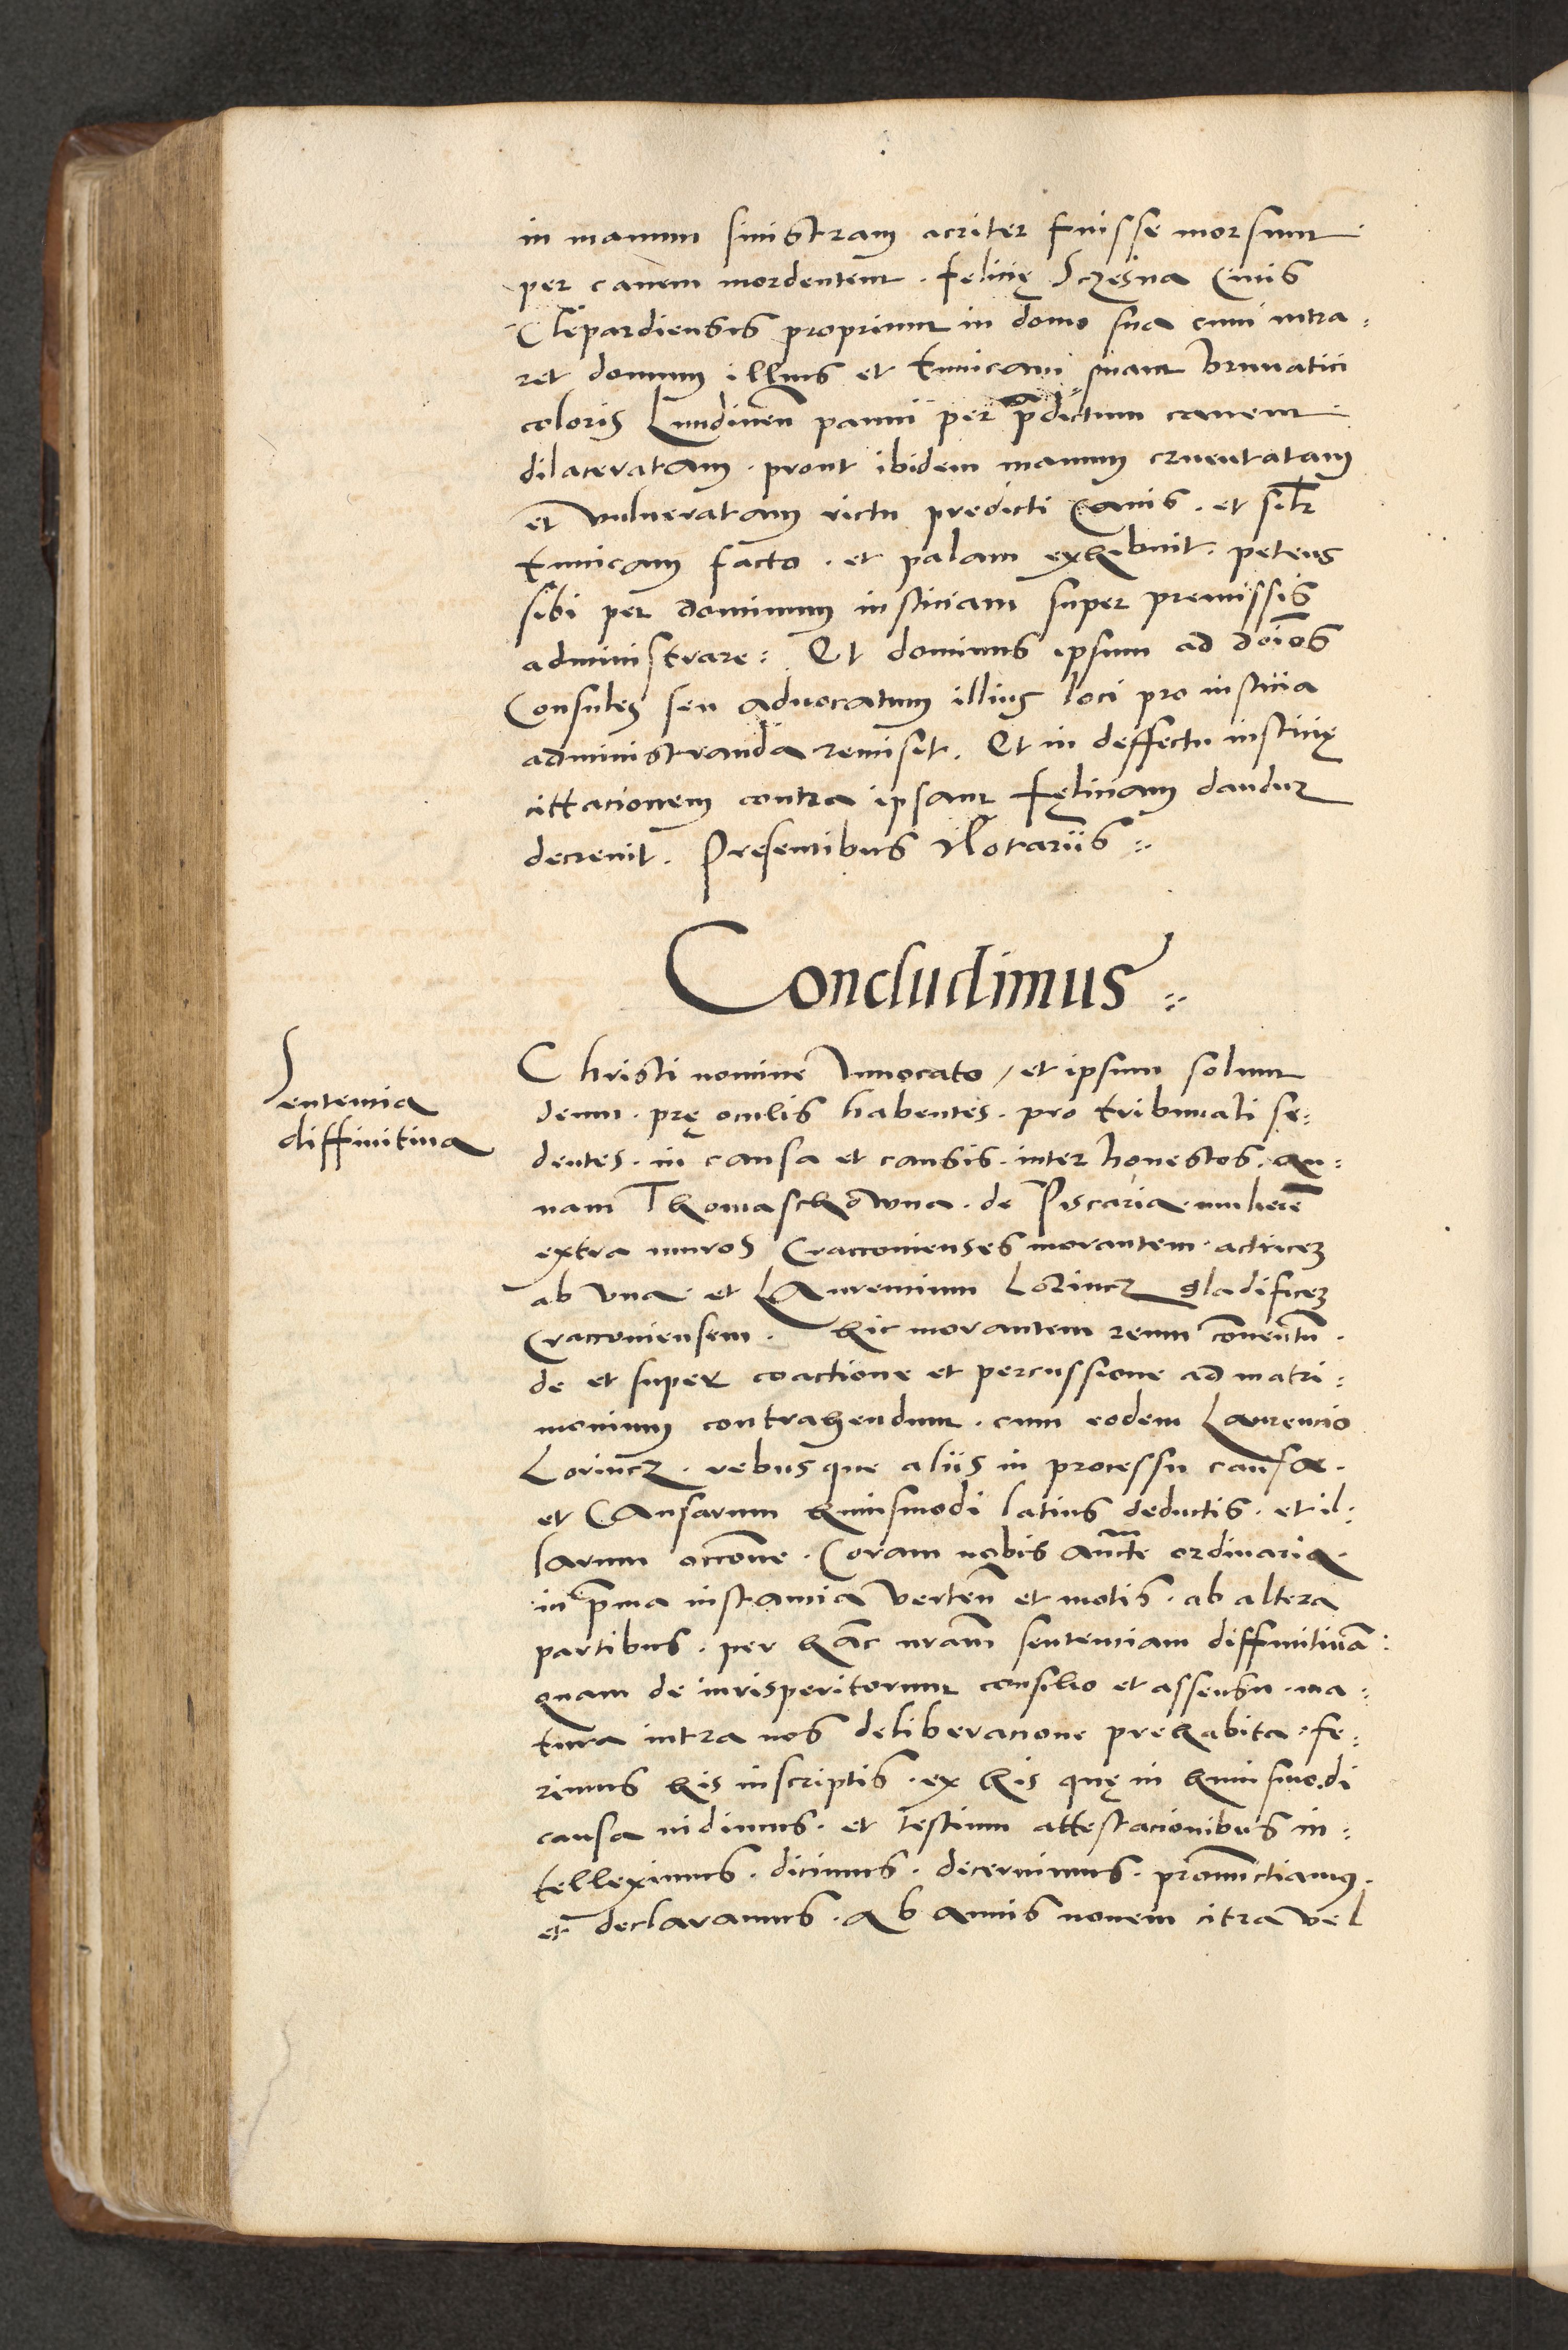 in manum sinistram acriter fuisse morsum
per canem mordentem . felicię Sczęsna Ciuis
Clepardiensis proprium in domo sua cum intra:
ret domum illius et tunicam suam brunatici
coloris Lundinen̄ panni per p̄dictum canem
dilaceratam . prout ibidem manum cruentatam
et vulneratam rictu predicti Canis . et silr̄
tunicam facto . et palam exhibuit . petens
sibi per dominum iusticiam super premissis
administrare : Et dominus ipsum ad doīos
Consules seu aduocatum illius loci pro iusticia
administranda remisit . Et in deffectu iusticię
cittacionem contra ipsam Fęliciam dandum
decreuit . Presentibus Notariis :
Concludimus :
Sentencia
diffinitiua
Christi nomine Inuocato / et ipsum solum
deum . prę oculis habentes . pro tribunali se:
dentes . in causa et causis . inter honestos . An:
nam Thomaschowna . de Piscaria . muliere͞
extra muros Cracouienses morantem . actricem
ab vna . et LAurencium Lorincz gladificem
Cracouiensem . hic morantem reum conuentu͞ .
de et super coactione et percussione ad matri:
monium contrahendum . cum eodem Laurencio
Lorincz . rebusque aliis in processu causae .
et CAusarum huiusmodi latius deductis . et il:
larum occōne . Coram nobis auc̄te ordinaria .
in p̄ma instancia verten̄ et motis . ab altera
partibus . per hāc nr̄am sentenciam diffinitiuā :
quam de iurisperitorum consilio et assensu . ma:
tura intra nos deliberacione prehabita . fe:
rimus his inscriptis . ex his quę in huiusmodi
causa uidimus . et testium attestacionibus in:
telleximus . dicimus . decernimus . pronūnctiamus .
et declaramus . Ab annis nouem citra vel